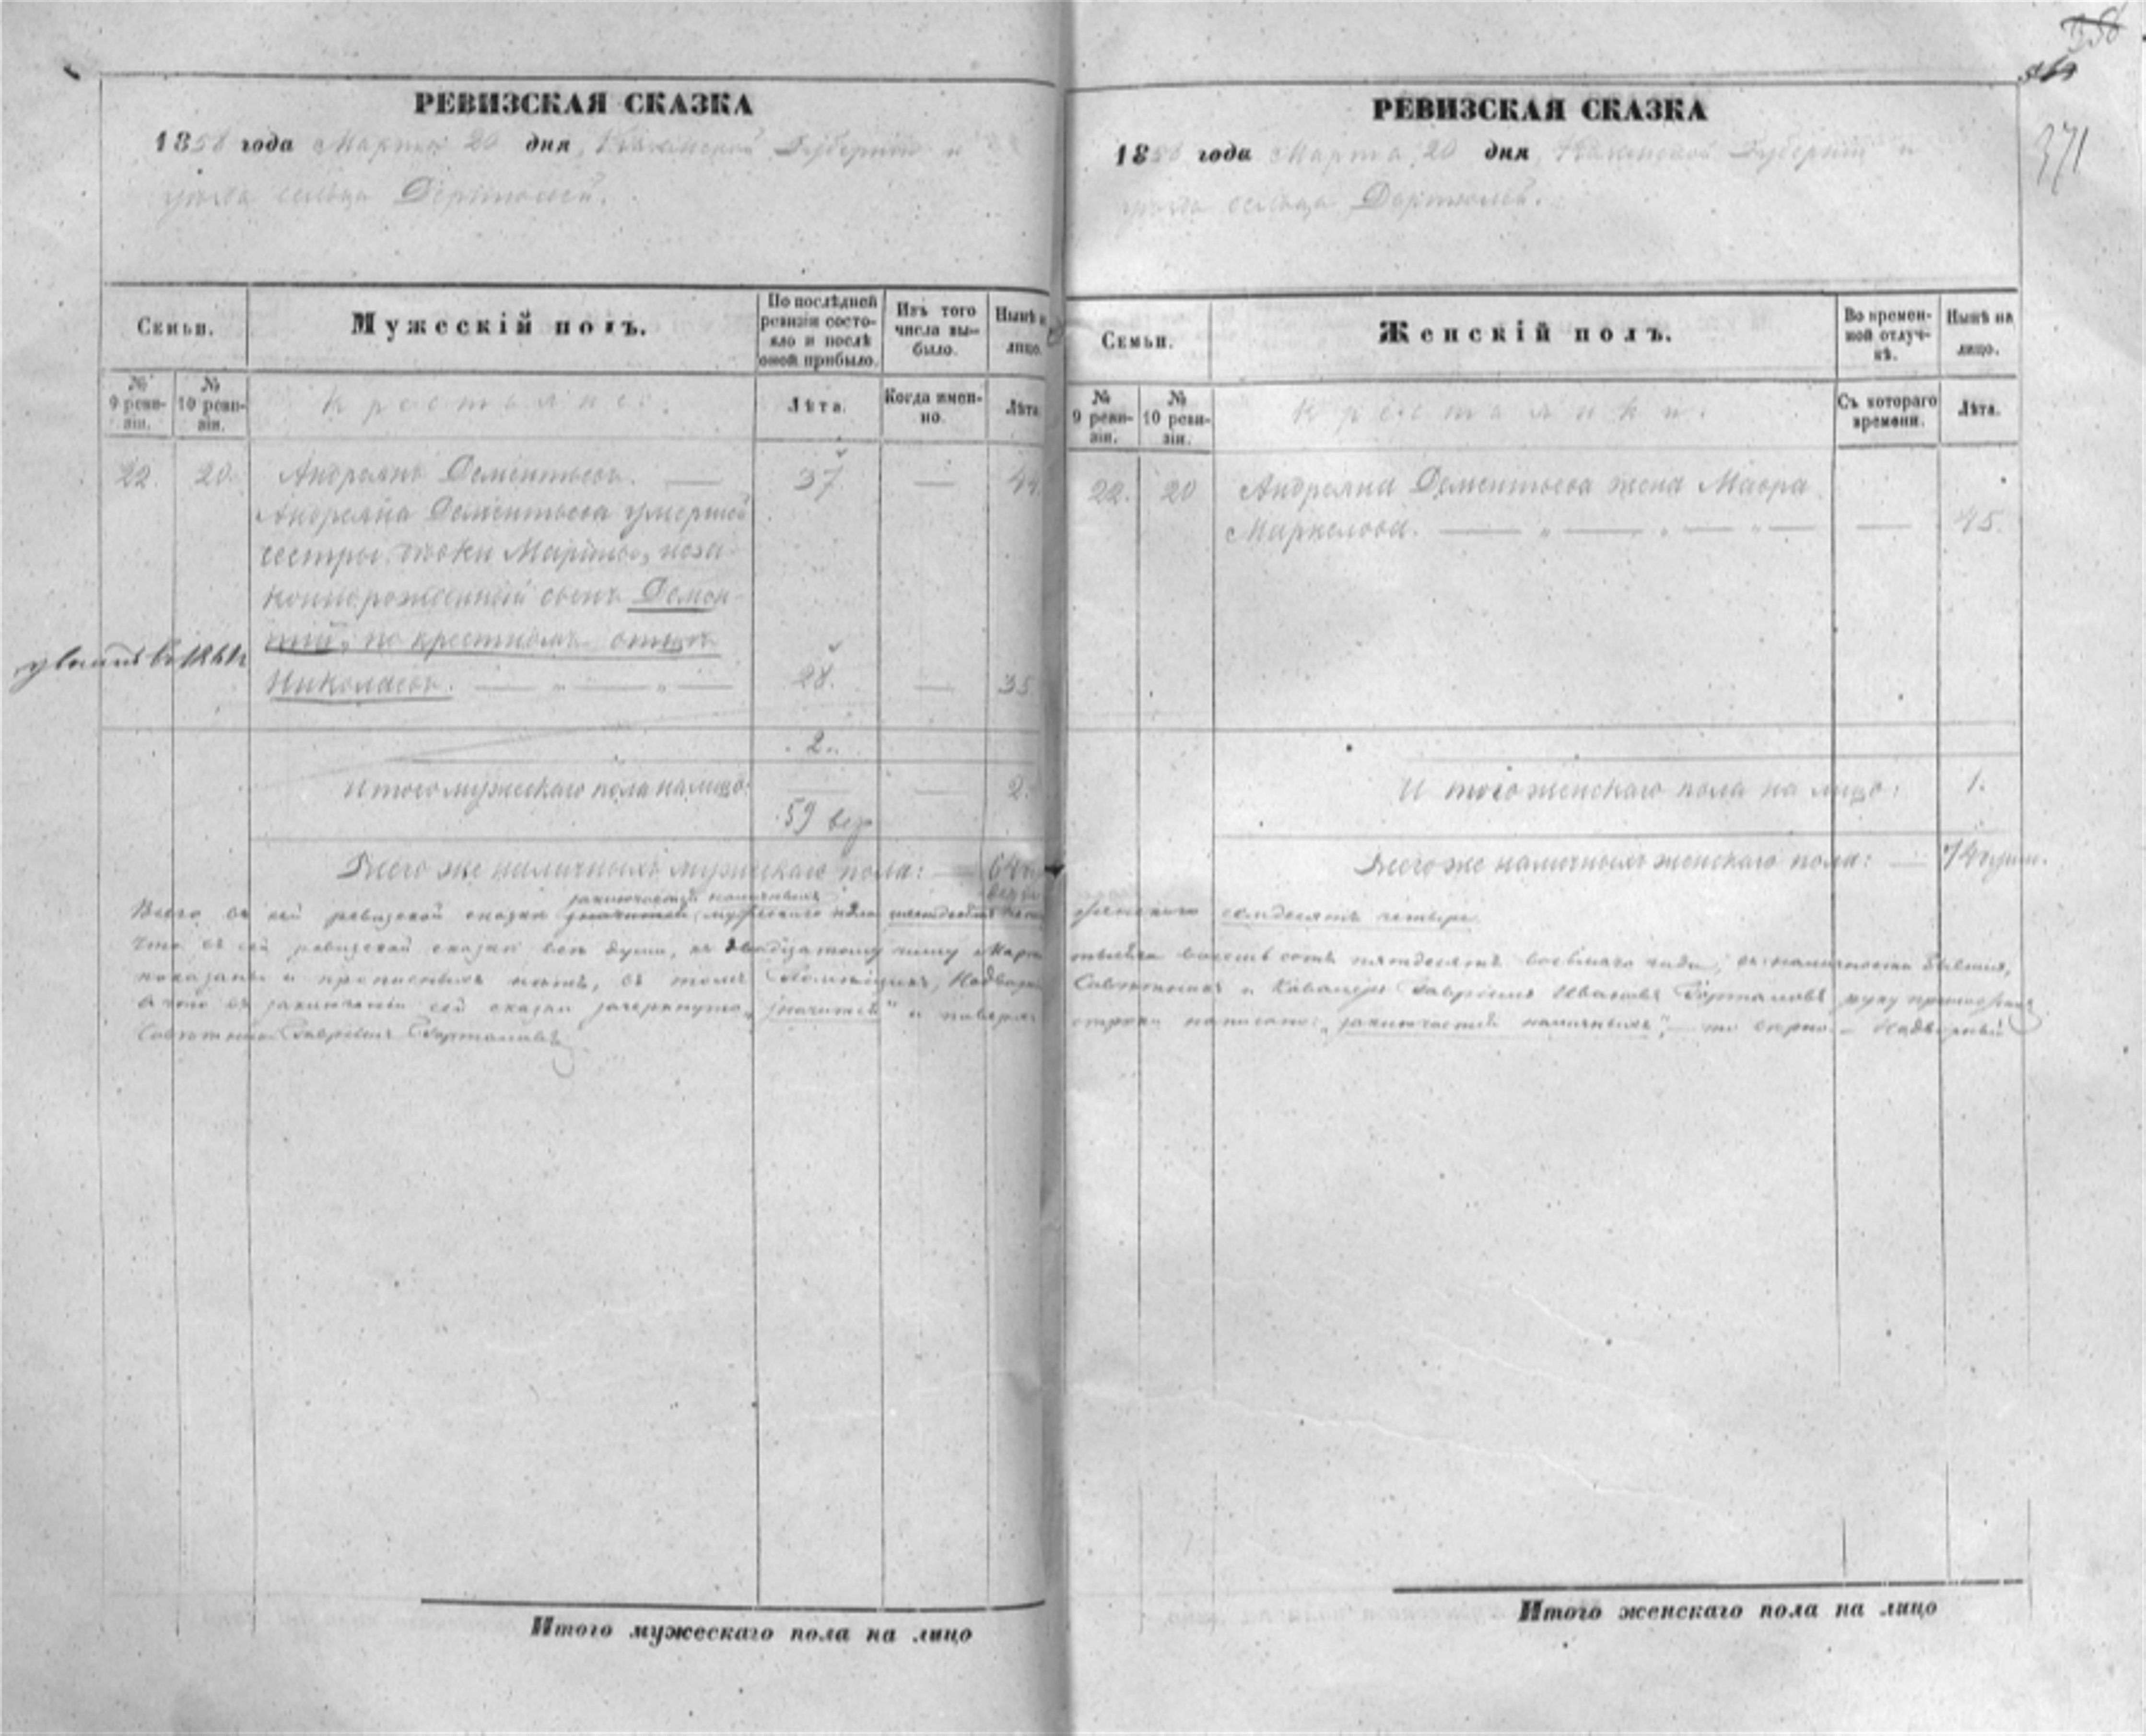 РЕВИЗСКАЯ СКАЗКА
1858 года Марта 20 дня, Казанской Губернии и
уезда сельца
Семьи.
Мужескій полъ.
По послѣдней ревизіи состояло и послѣ оной прибыло.
Изъ того числа выбыло.
Нынѣ на лицо.
№ 9 ревизіи.
№ 10 ревизіи.
Крестьяне.
Лѣта.
Когда именно.
Лѣта
22. 20. Андреянъ Дементьевъ. — 37 — 44.
Андреяна Дементьева умершей
сестры
незаконнорожденный сынъ Демен-
тій, по крестному отцу
Николаевъ. — „ — „ — 28. — 35
2.
Итого мужескаго пола на лицо: — — 2.
59
Всего же наличныхъ мужескаго пола: — 64
заключается наличныхъ
Всего въ сей ревизской сказке значится мужескаго пола
что въ сей ревизской сказке все души, къ двадцатому числу Марта
показаны и прописныхъ нетъ, въ томъ Помещикъ, Надворный
въ заключеніи сей сказки зачеркнуто „значится" и поверхъ
Советникъ Гавріилъ
Итого мужескаго пола на лицо
371
РЕВИЗСКАЯ СКАЗКА
1858 года Марта 20 дня, Казанской Губерніи и
уезда сельца
Семьи.
Женскій полъ.
Во временной отлучкѣ.
Нынѣ на лицо.
№ 9 ревизіи.
№ 10 ревизіи.
Крестьянки.
Съ котораго времени.
Лѣта.
22. 20 Андреяна Дементьева жена Мавра
Маркелова. — „ — „ — „ — — 45.
Итого женскаго пола на лицо: 1.
Всего же наличныхъ женскаго пола: — 74
женскаго семдесятъ четыре.
тысяча восемь сотъ пятдесятъ восьмаго года, въ наличности бывшія,
Советникъ и Кавалеръ Гавріилъ Ивановъ руку приложилъ
строки написано: „заключается наличныхъ", — то верно. — Надворный
Итого женскаго пола на лицо